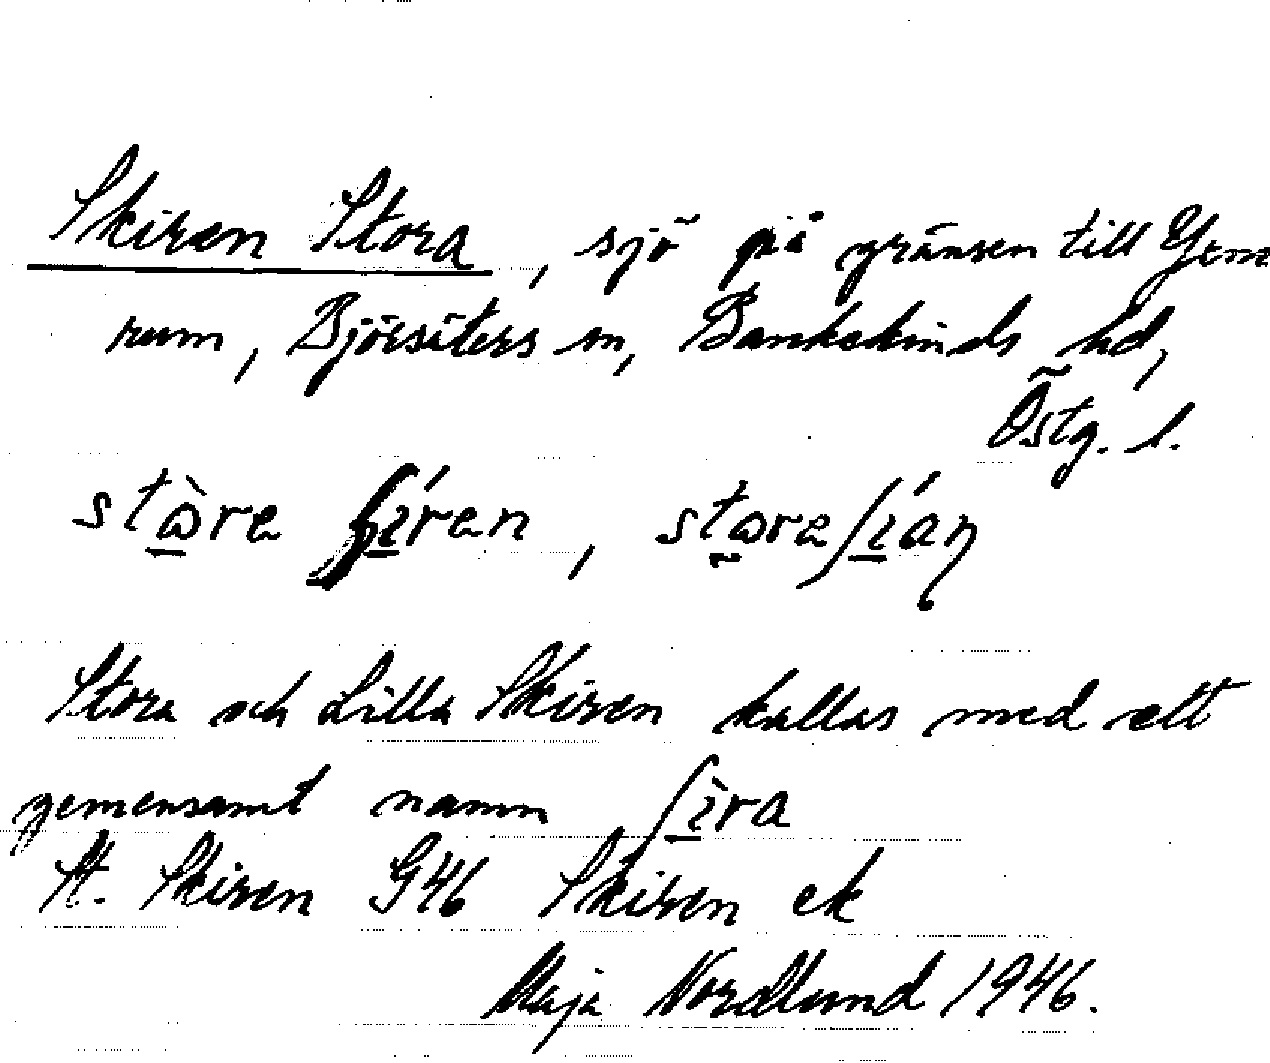 Skiren Stora, sjö på gränsen till Yxne
rum, Björsäters sn, Bankekinds hd,
Östg. l.
stɷ̀re ʃíren, stɷreʃíáɳ
Stora och Lilla Skiren kallas med ett
gemensamt namn ʃìra
St. Skiren G46 Skiren ek
Maja Nordlund 1946.